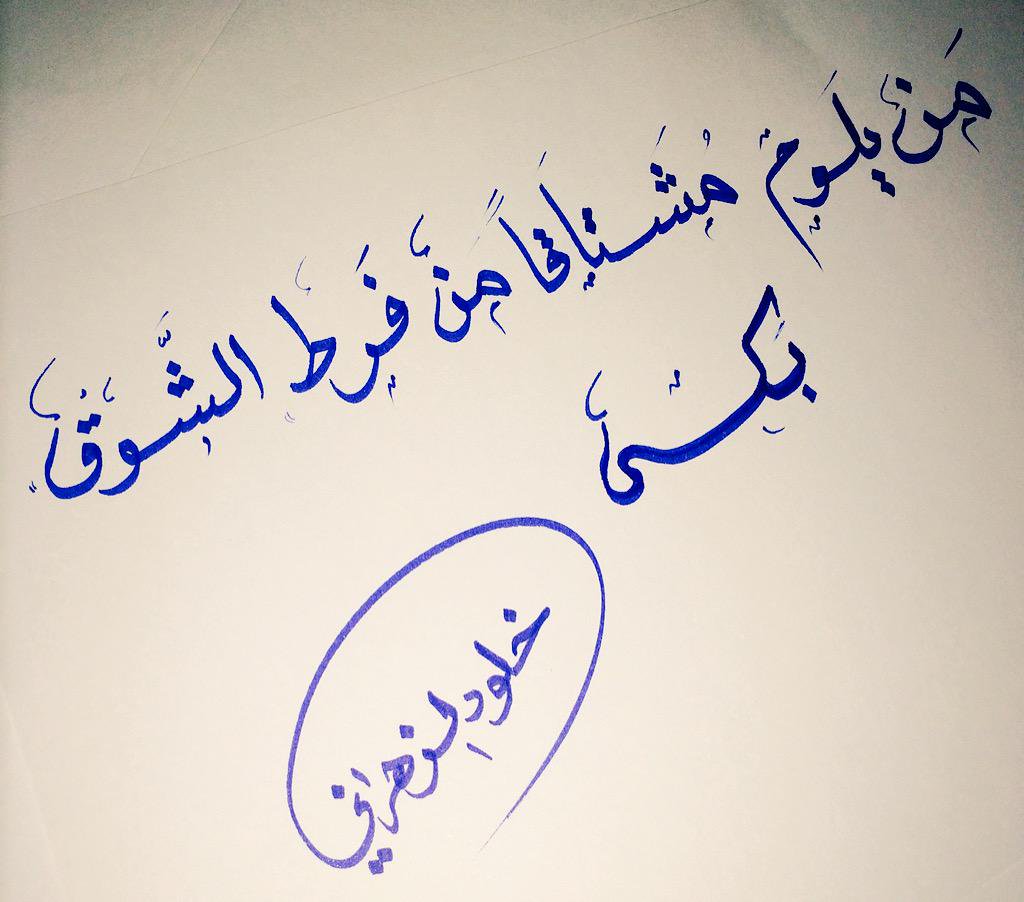 مَن يلَومُ مُشَتاقاً مَنْ فَرِط الشَّوَقْ
بَكى
خلود الزهراني